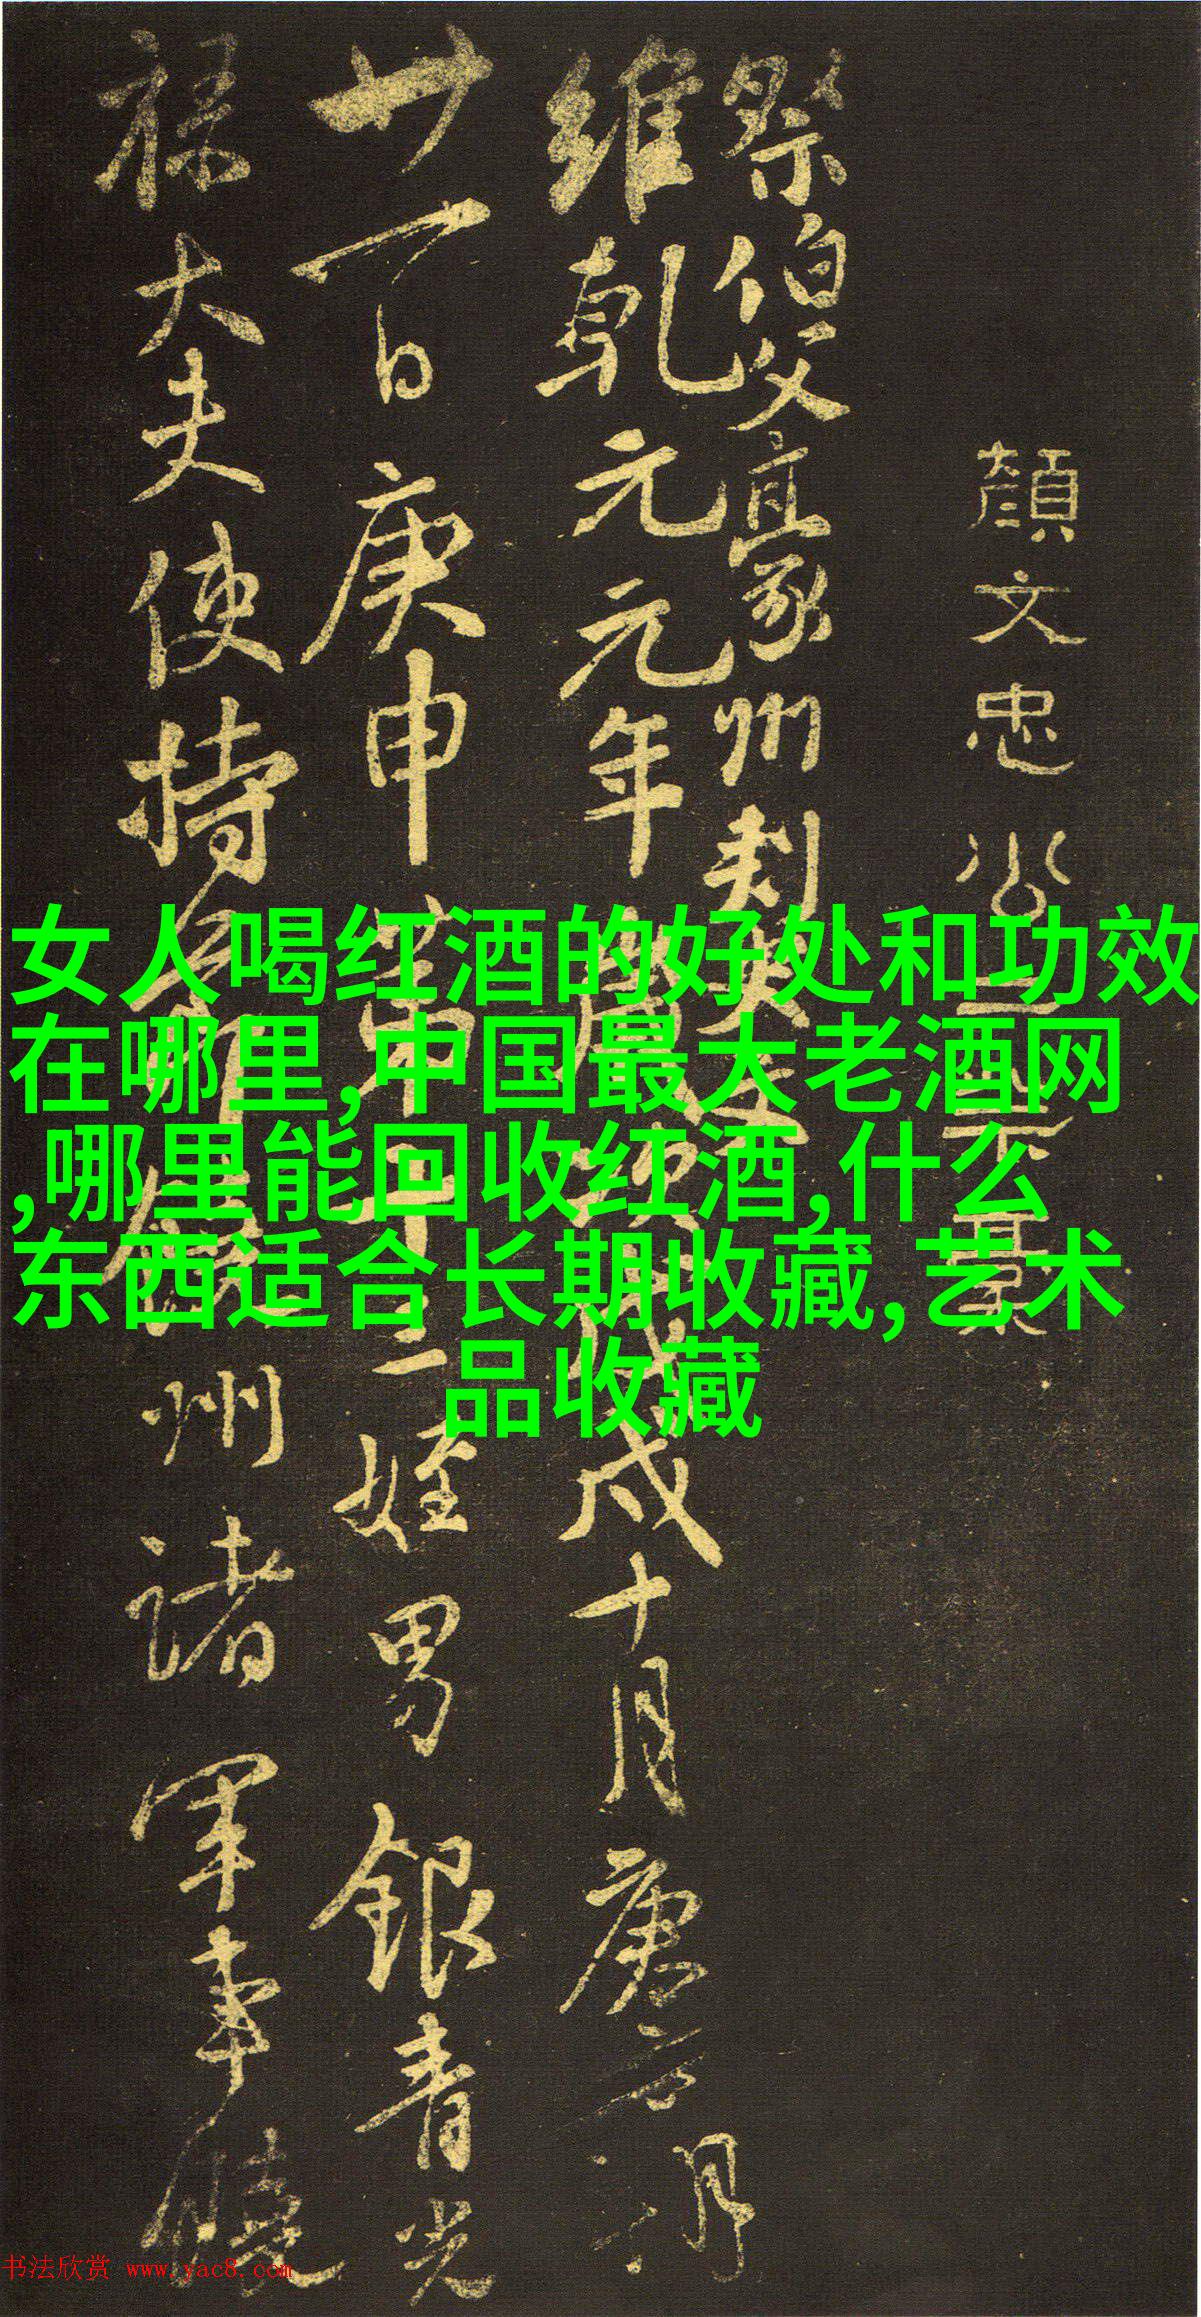 顏文忠公
祭伯父豪州刺史文
維乾元元年歲次戊戌十月庚寅朔
廿一日庚申第十三姪男銀青光
祿大夫使持節饒州諸軍事饒
女人喝红酒的好处和功效
在哪里,中国最大老酒网
,哪里能回收红酒,什么
东西适合长期收藏,艺术
品收藏
书法欣赏 www.yac8.com